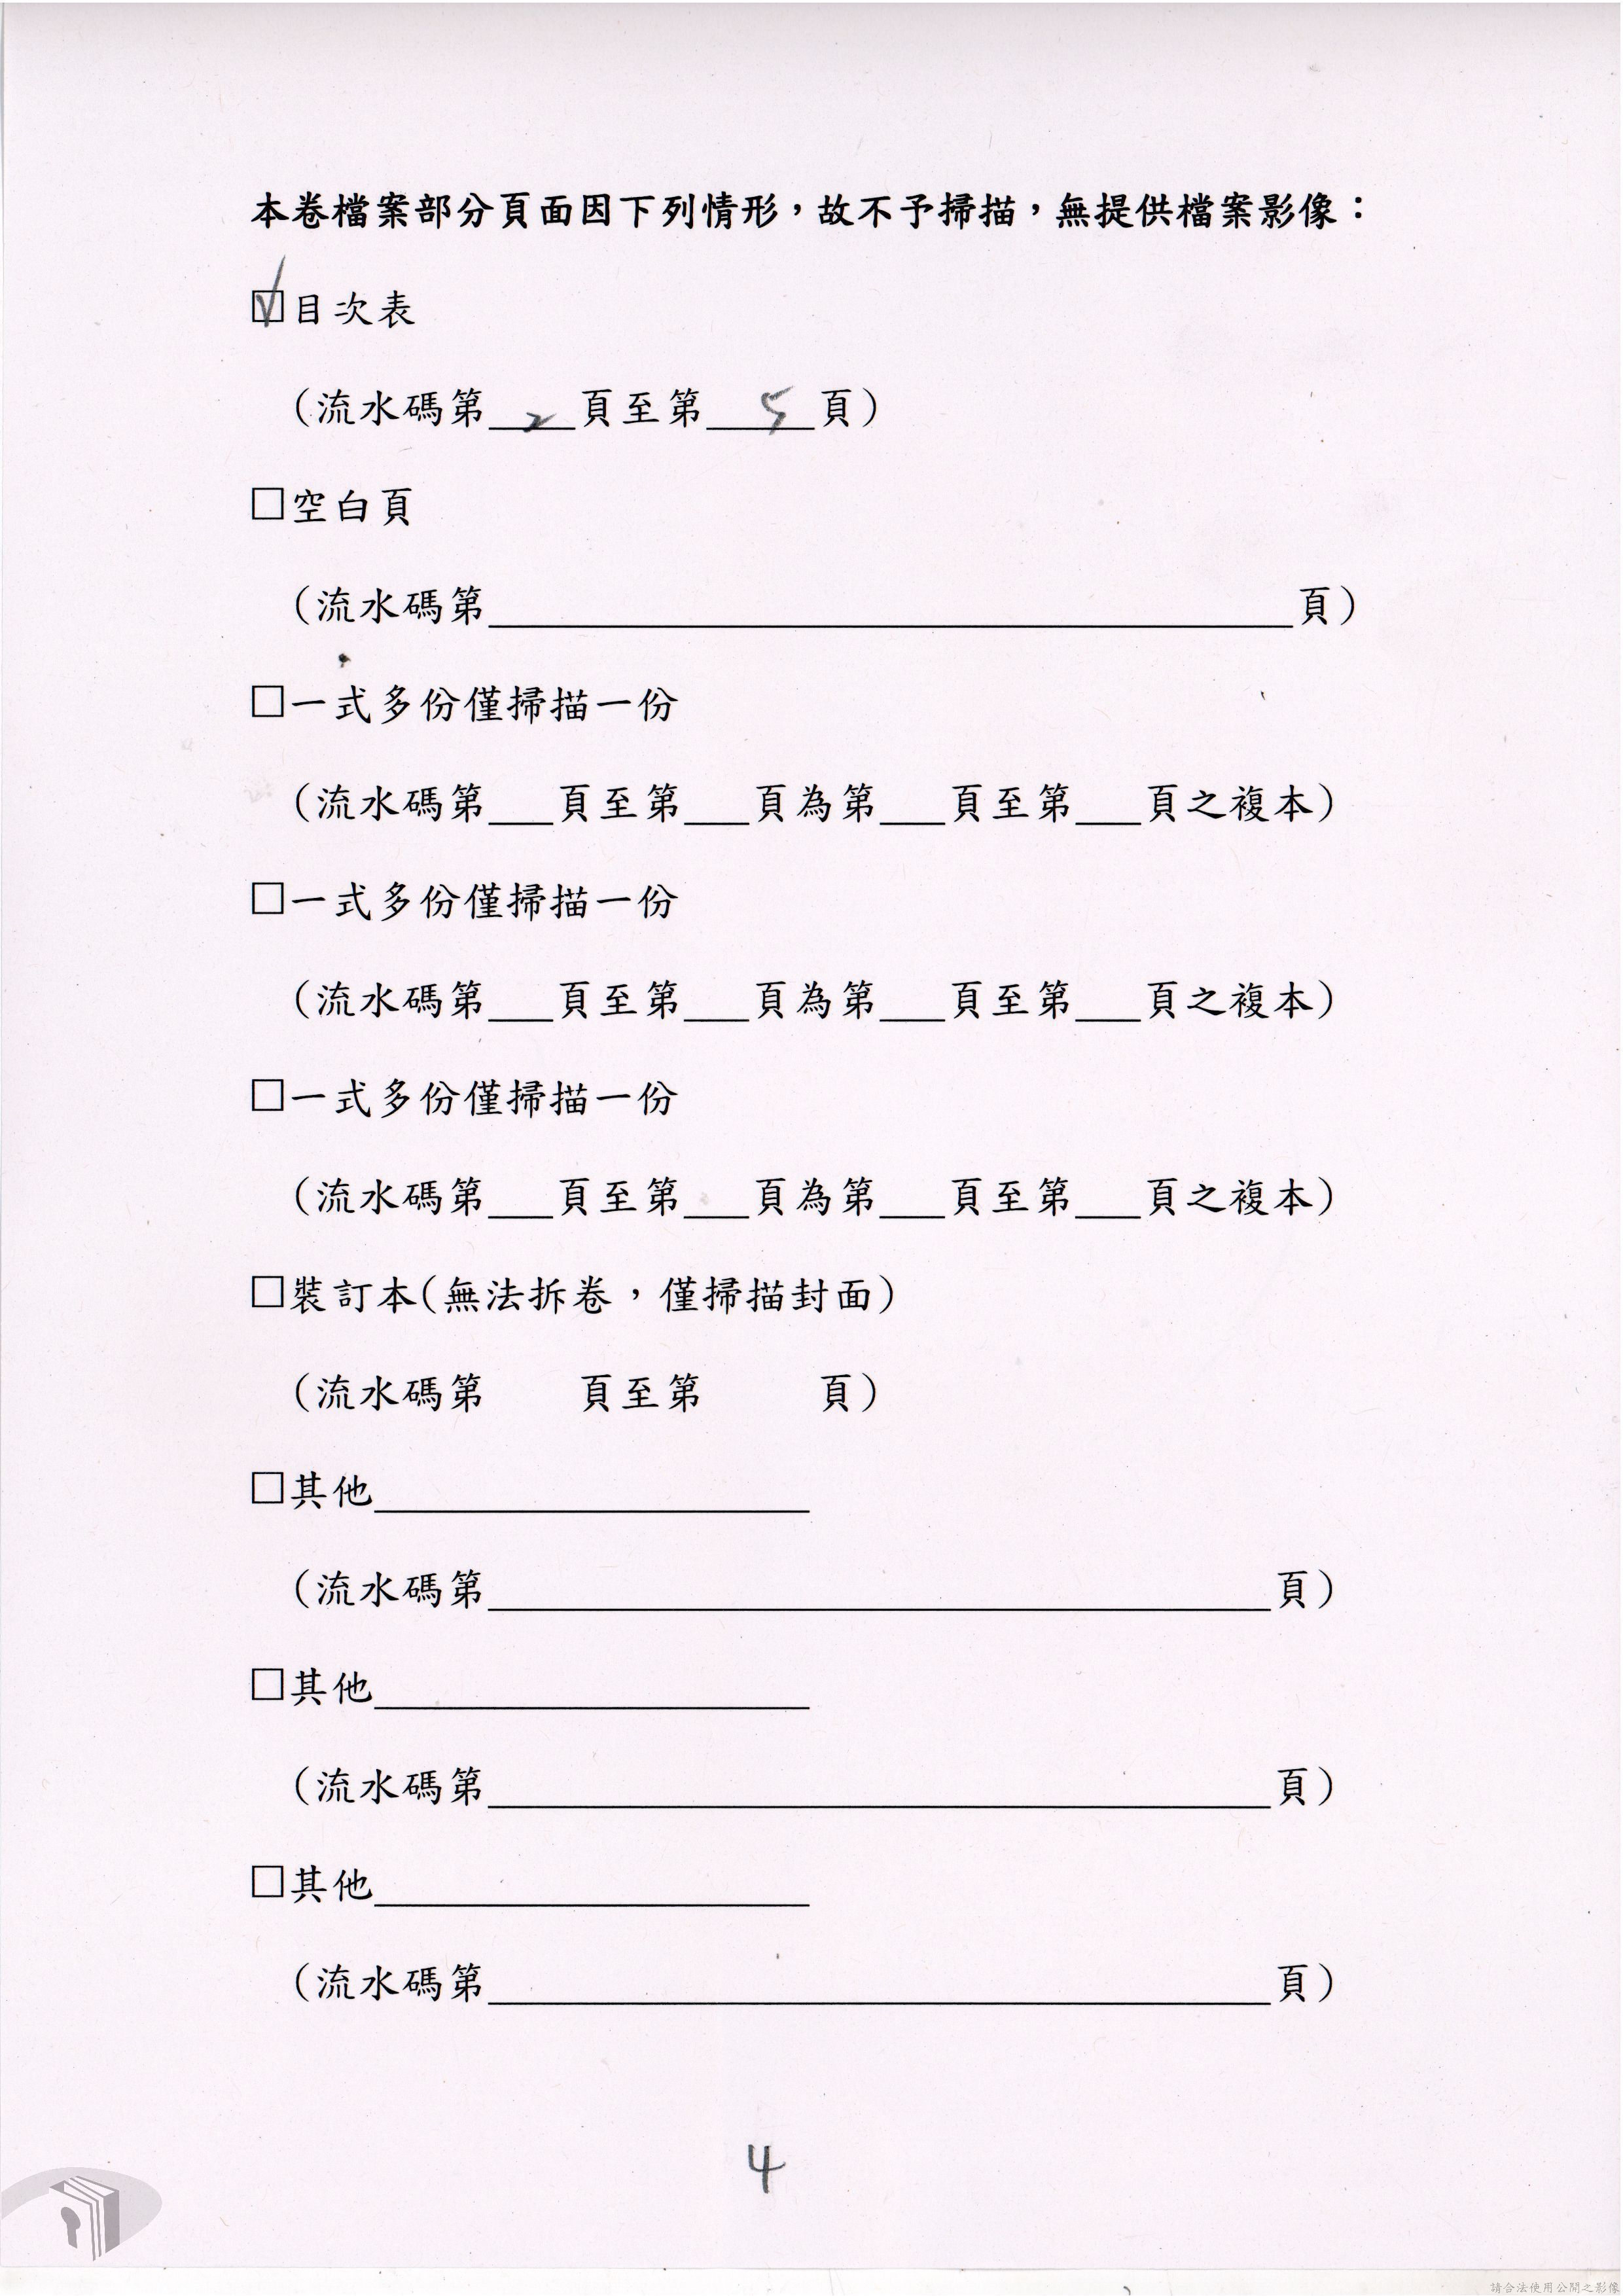 本卷檔案部分頁面因下列情形，故不予掃描，無提供檔案影像：
☑目次表
（流水碼第__2__頁至第__5__頁）
□空白頁
（流水碼第____________________頁）
□一式多份僅掃描一份
（流水碼第___頁至第___頁為第___頁至第___頁之複本）
□一式多份僅掃描一份
（流水碼第___頁至第___頁為第___頁至第___頁之複本）
□一式多份僅掃描一份
（流水碼第___頁至第___頁為第___頁至第___頁之複本）
□裝訂本(無法拆卷，僅掃描封面)
（流水碼第 頁至第 頁）
□其他____________________
（流水碼第____________________頁）
□其他____________________
（流水碼第____________________頁）
□其他____________________
（流水碼第____________________頁）
4
請合法使用公開之影像